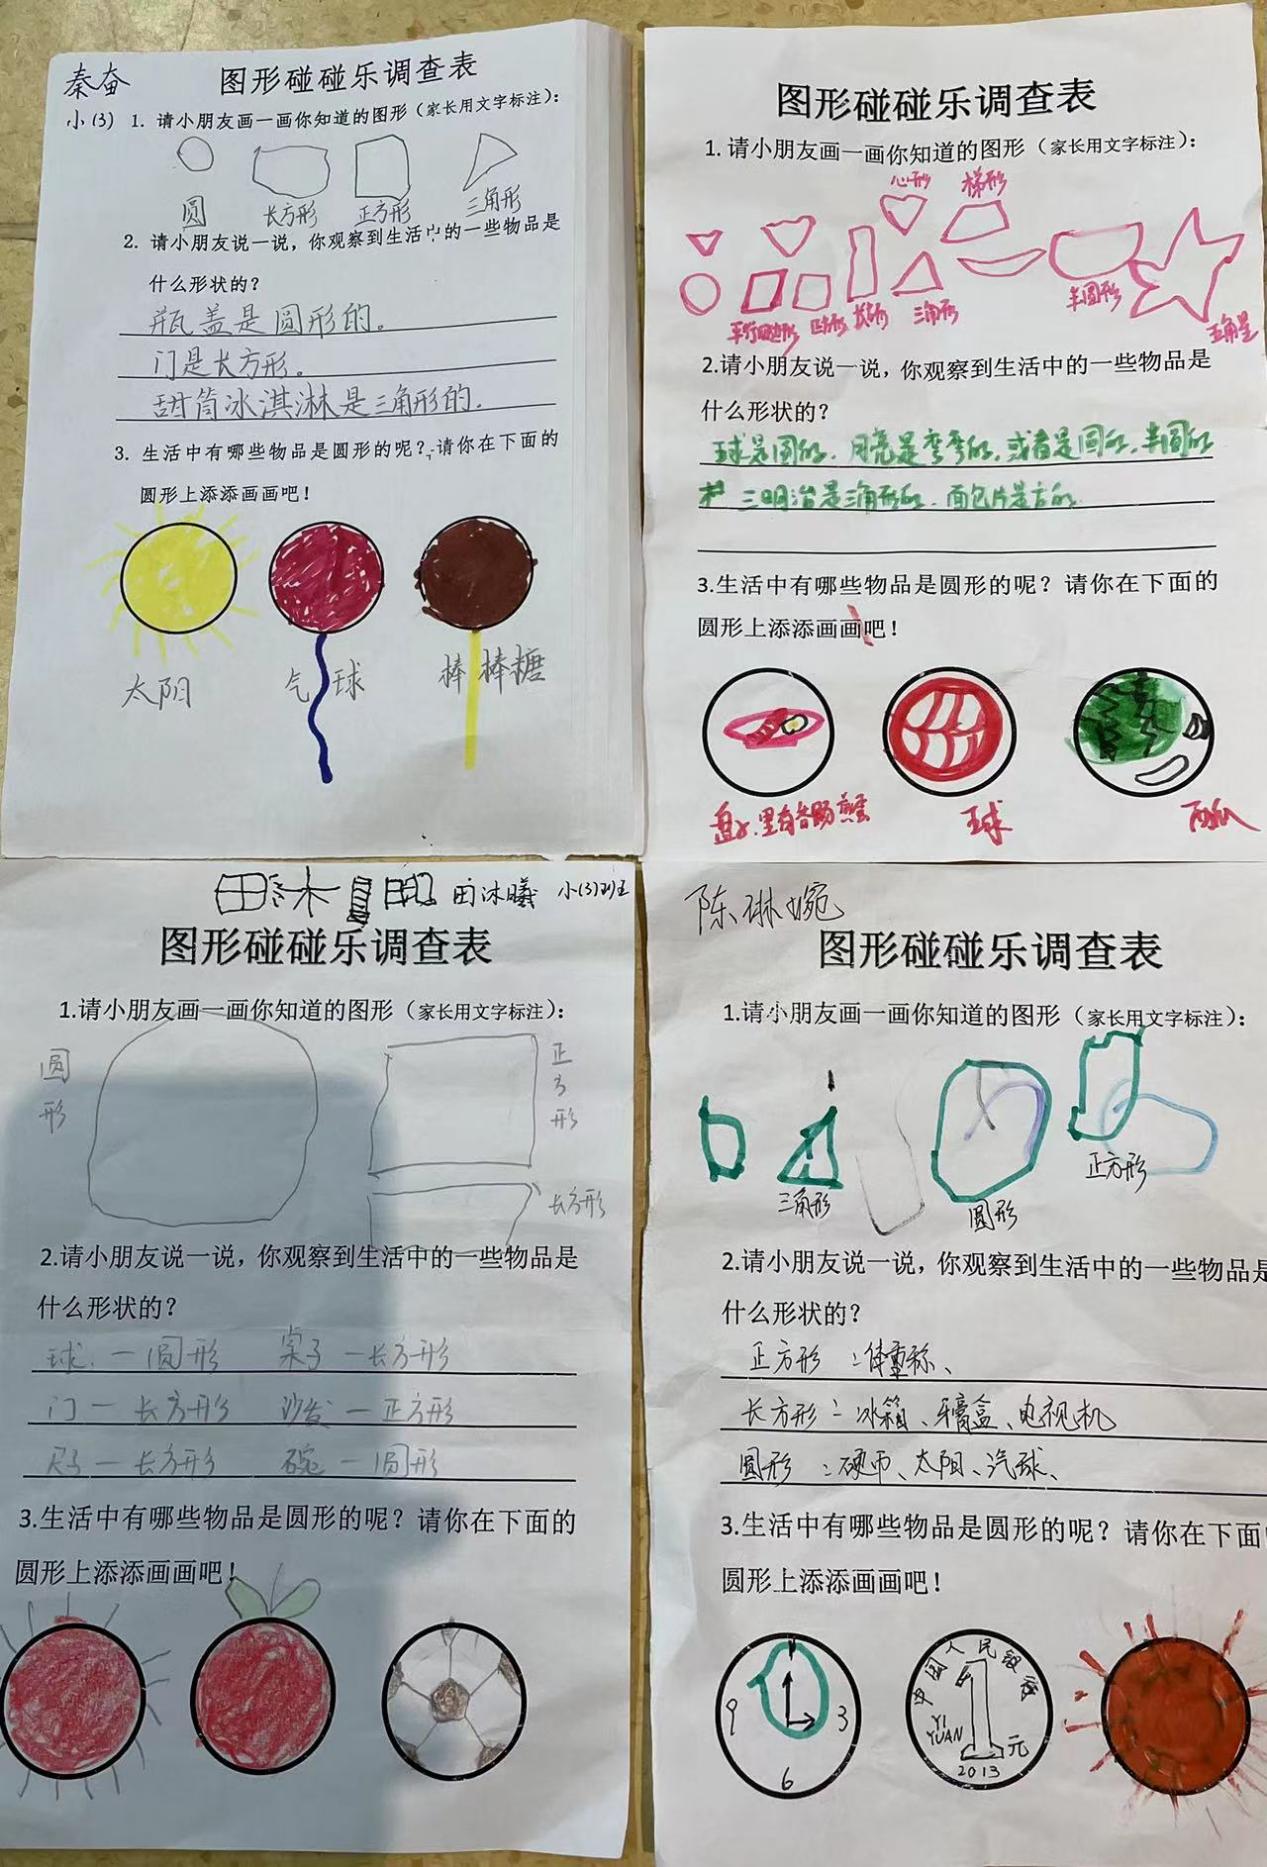 秦奋
图形碰碰乐调查表
小(3) 1. 请小朋友画一画你知道的图形（家长用文字标注）：
圆 长方形 正方形 三角形
2. 请小朋友说一说，你观察到生活中的一些物品是
什么形状的？
瓶盖是圆形的。
门是长方形。
甜筒冰淇淋是三角形的.
3. 生活中有哪些物品是圆形的呢？请你在下面的
圆形上添添画画吧！
太阳 气球 棒棒糖
图形碰碰乐调查表
1. 请小朋友画一画你知道的图形（家长用文字标注）：
心形 梯形
平行四边形 正方形 长方形 三角形 半圆形 五角星
2.请小朋友说一说，你观察到生活中的一些物品是
什么形状的？
球是圆的. 月亮是弯弯的, 或者是圆的. 半圆的
三明治是三角形的. 面包片是方的.
3.生活中有哪些物品是圆形的呢？请你在下面的
圆形上添添画画吧！
盘子里有香肠 煎蛋 球 西瓜
田冰曦 田冰曦 小(3)班
图形碰碰乐调查表
1.请小朋友画一画你知道的图形（家长用文字标注）：
圆形 正方形
长方形
2.请小朋友说一说，你观察到生活中的一些物品是
什么形状的？
球. — 圆形 桌子 — 长方形
门 — 长方形 沙发 — 正方形
尺子 — 长方形 碗 — 圆形
3.生活中有哪些物品是圆形的呢？请你在下面的
圆形上添添画画吧！
陈琳婉
图形碰碰乐调查表
1.请小朋友画一画你知道的图形（家长用文字标注）：
三角形 圆形 正方形
2.请小朋友说一说，你观察到生活中的一些物品是
什么形状的？
正方形 ：体重称、
长方形：冰箱、牙膏盒、电视机
圆形 ：硬币、太阳、汽球、
3.生活中有哪些物品是圆形的呢？请你在下面
圆形上添添画画吧！
9 3 6
中国人民银行
1
YI YUAN 元
2013